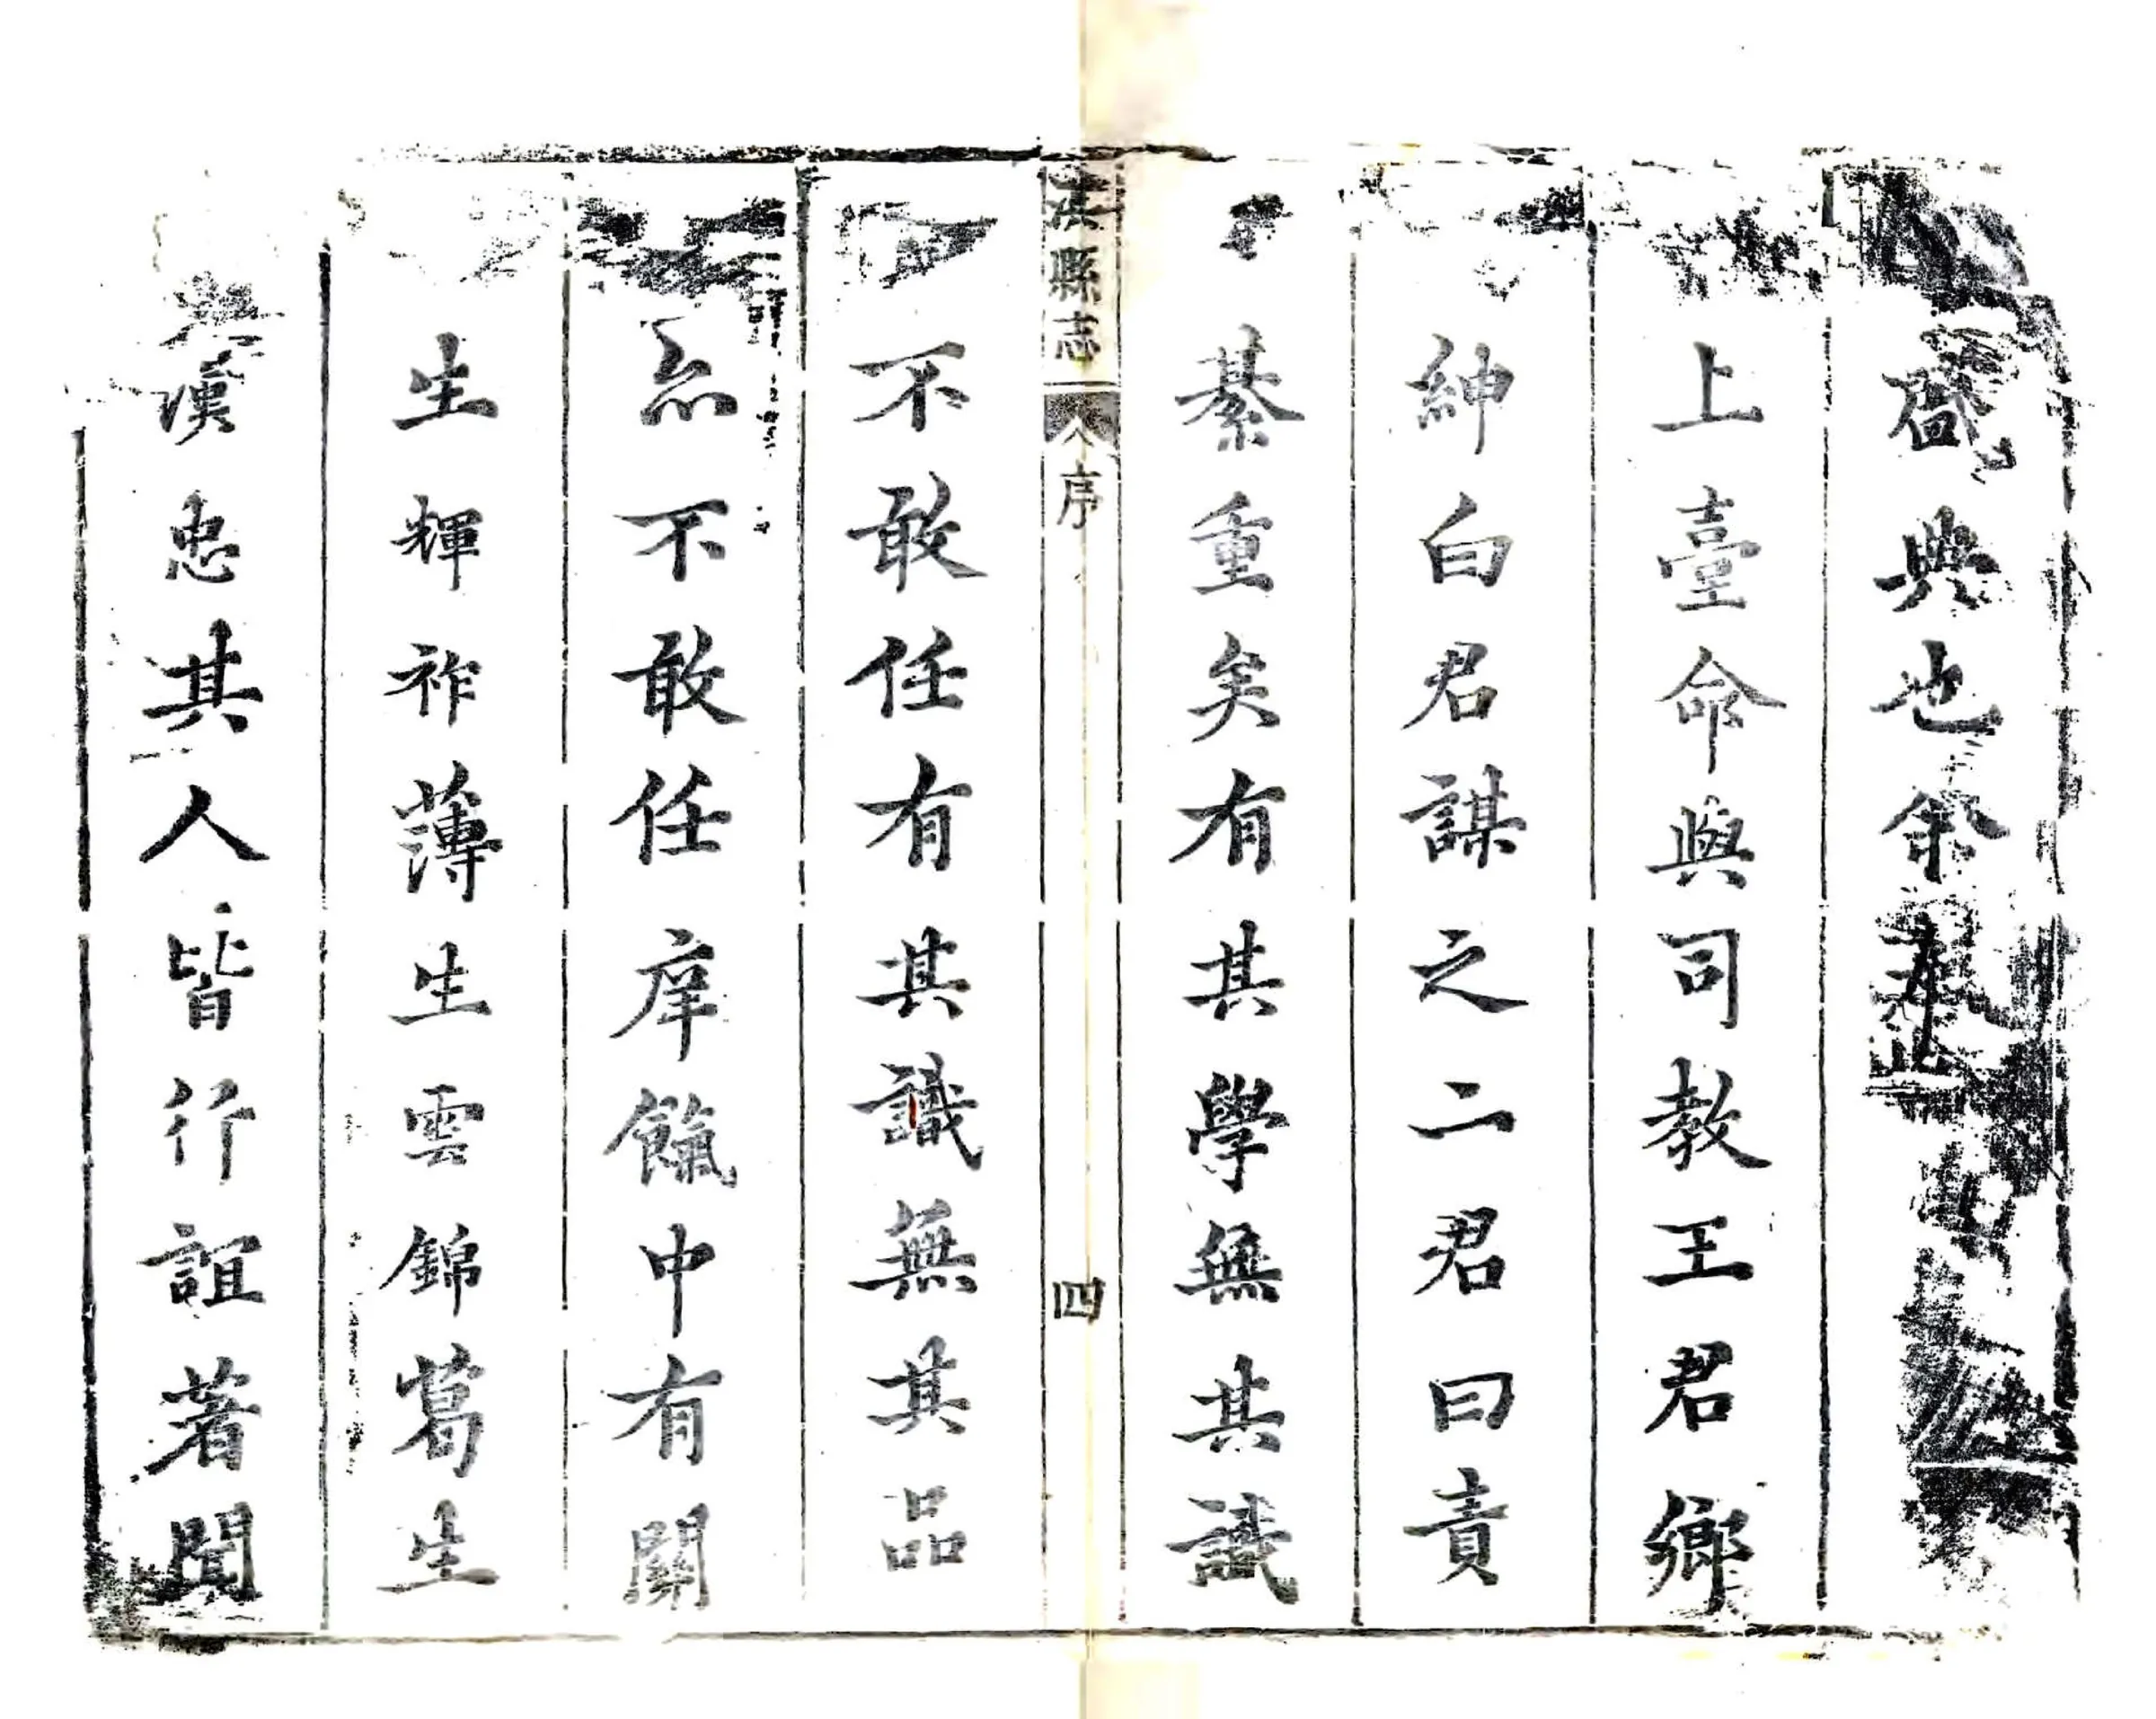 盛典也余奉此
上臺命與司教王君鄉
紳白君謀之二君曰責
綦重矣有其學無其識
淇縣志
序
四
不敢任有其識無其品
亦不敢任庠餼中有關
生輝祚薄生雲錦葛生
漢忠其人皆行誼著聞